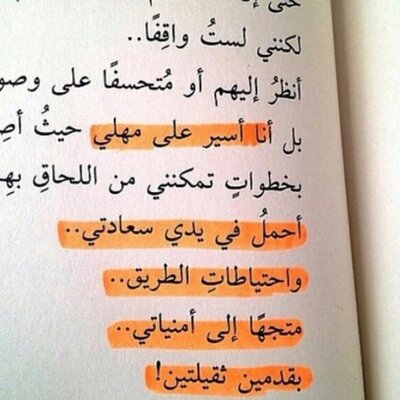 لكنني لستُ واقِفًا..
أنظرُ إليهم أو مُتحسفًا على
بل أنا أسير على مهلي حيثُ
بخطواتٍ تمكنني من اللحاقِ
أحملُ في يدي سعادتي..
واحتياطاتِ الطريق..
متجهًا إلى أمنياتي..
بقدمين ثقيلتين!